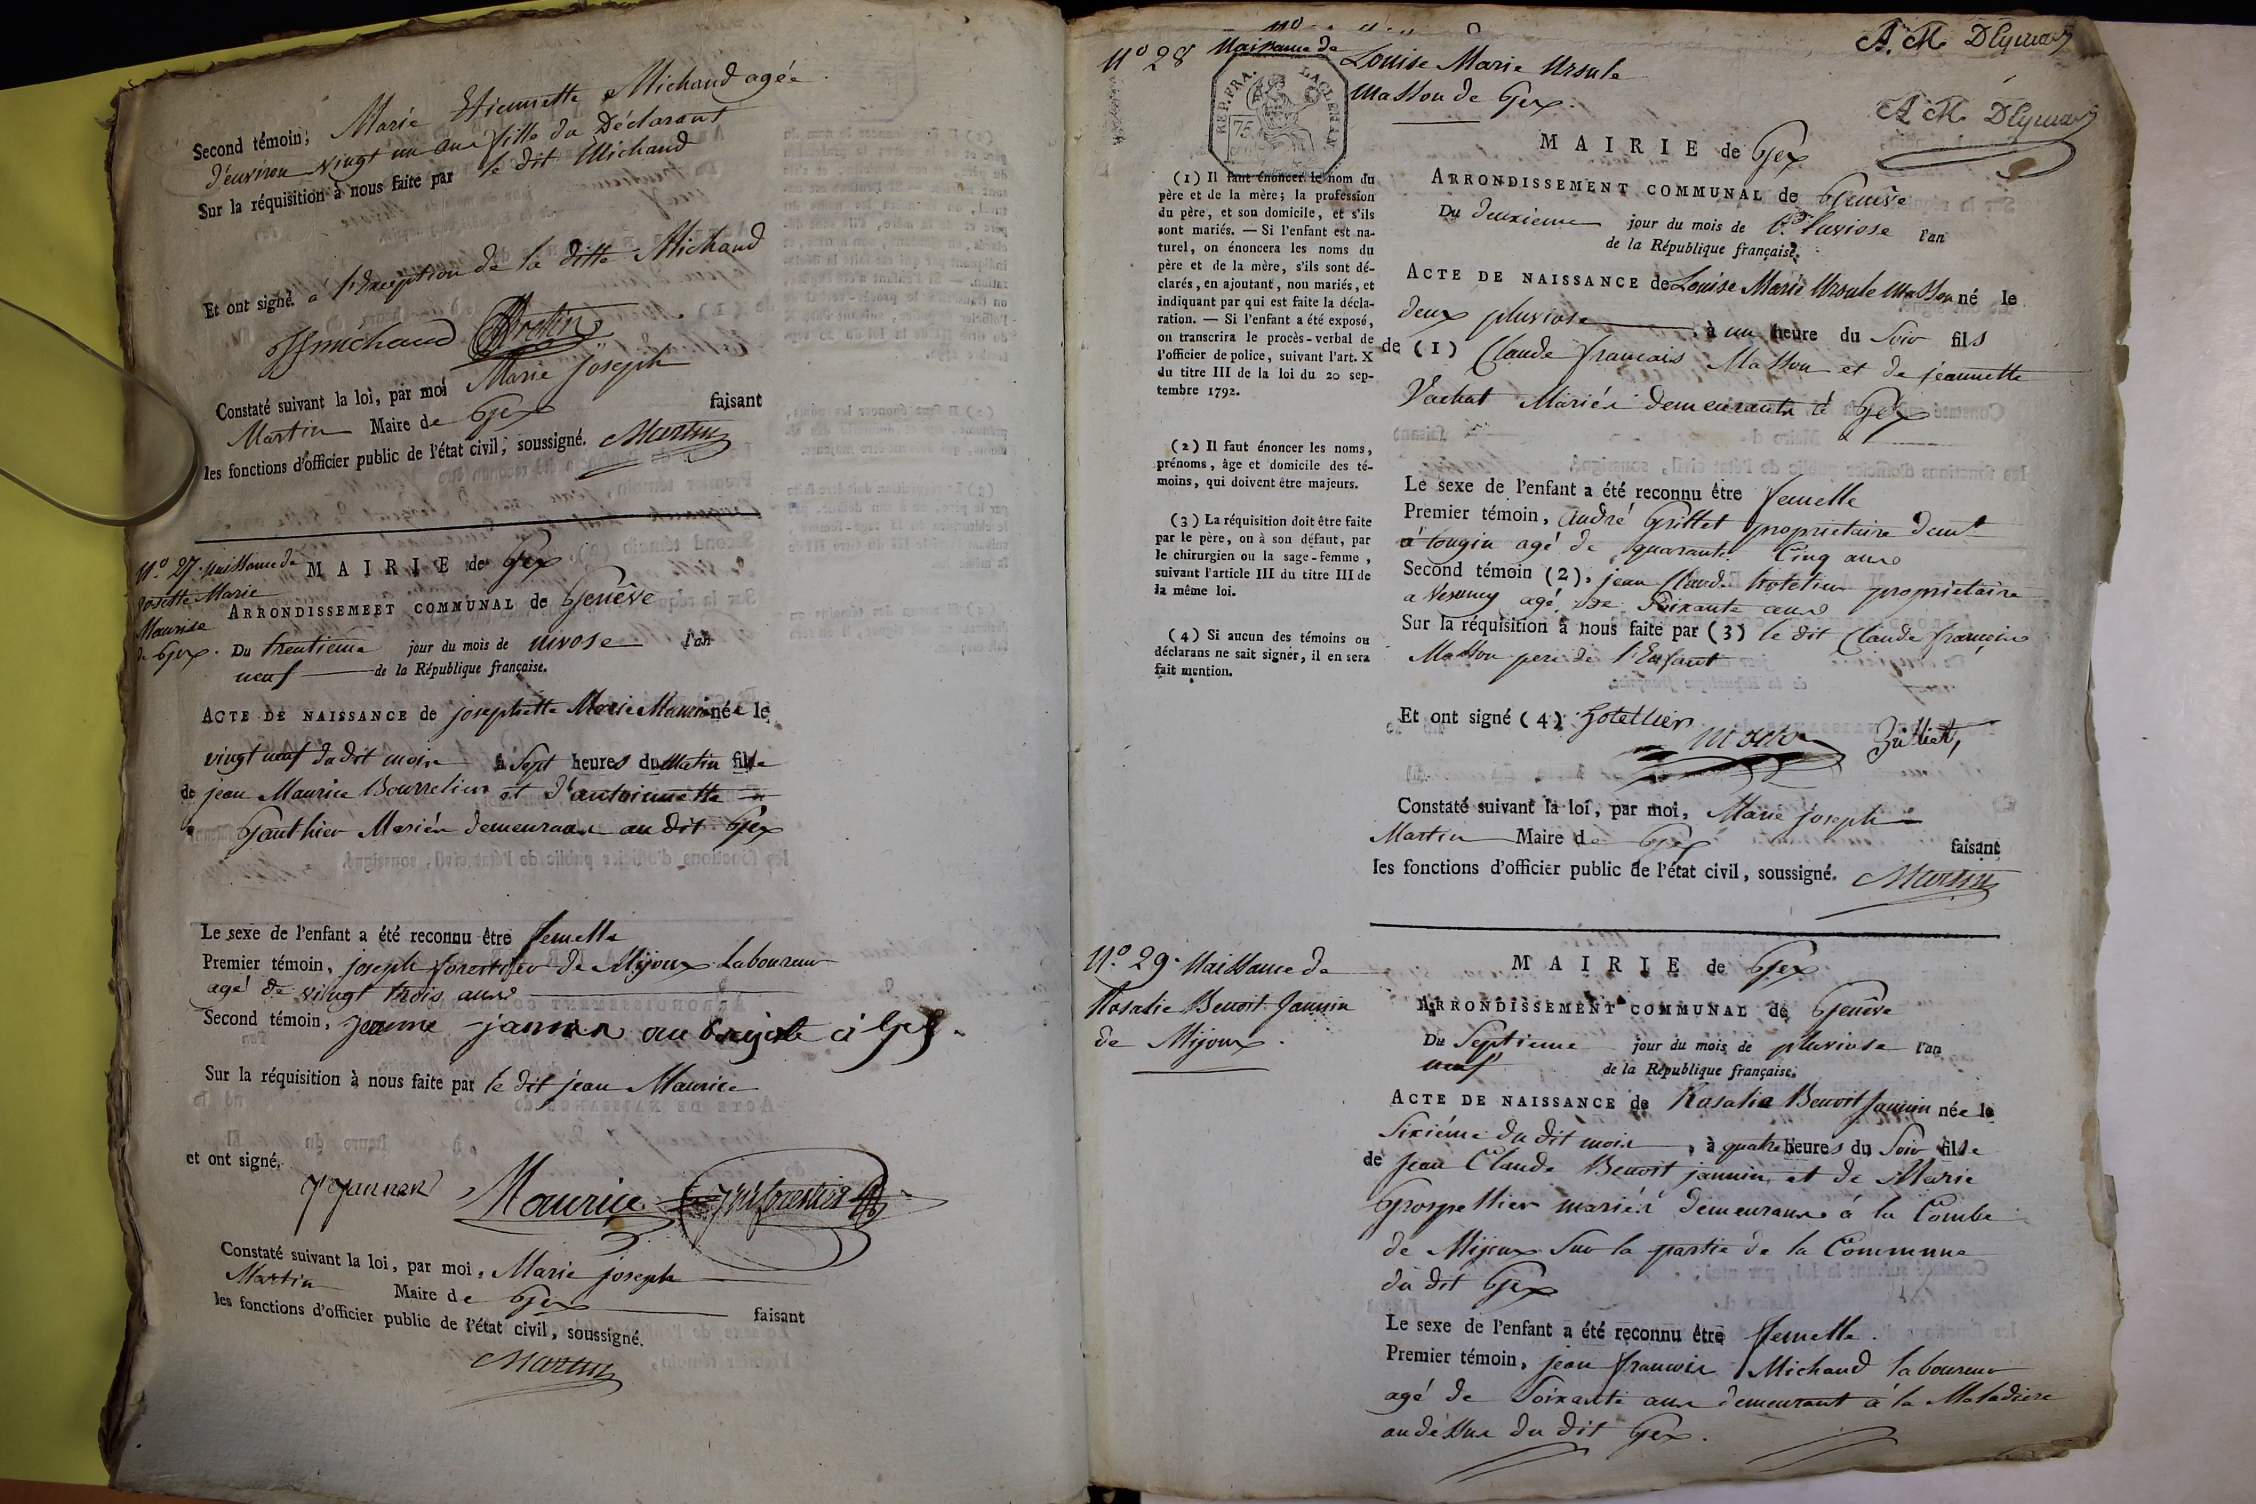 Second témoin, Marie Etiennette Michaud agée
d'environ vingt un ans fille du Déclarant
Sur la réquisition à nous faite par le dit Michaud
Et ont signé. a l'Exception de la ditte Michaud
Jfmichaud
Constaté suivant la loi, par moi Marie Joseph
Martin Maire de Gex faisant
les fonctions d'officier public de l'état civil, soussigné. Martin
N.º 27. Naissance de
Josette Marie
Maurise
de Gex.
MAIRIE de Gex
ARRONDISSEMEET COMMUNAL de Genêve
Du trentieme jour du mois de nivose l'an
neuf de la République française.
ACTE DE NAISSANCE de josephette Marie Mauris née le
vingt neuf du dit mois à Sept heures du Matin fille
de jean Maurice Bourrelier et d'antoinette
Gauthier Mariés demeurans au dit Gex
Le sexe de l'enfant a été reconnu être femelle
Premier témoin, joseph forestier de Mijoux Laboureur
agé de vingt trois ans
Second témoin, janin aubergiste à Gex.
Sur la réquisition à nous faite par le dit jean Maurice
et ont signé.
Maurice
Constaté suivant la loi, par moi, Marie joseph
Martin Maire de Gex faisant
les fonctions d'officier public de l'état civil, soussigné.
Martin
Nº 28 Naissance de Louise Marie Ursule
Masson de Gex.
REP. FRA.
75
MAIRIE de Gex
ARRONDISSEMENT COMMUNAL de Genêve
Du deuxieme jour du mois de Pluviose l'an
de la République française.
ACTE DE NAISSANCE de Louise Marie Ursule Masson né le
deux pluviose à un heure du Soir fils
de (1) Claude francois Masson et de jeannette
Vachat Mariés demeurants à Gex
(1) Il faut énoncer le nom du
père et de la mère; la profession
du père, et son domicile, et s'ils
sont mariés. — Si l'enfant est na-
turel, on énoncera les noms du
père et de la mère, s'ils sont dé-
clarés, en ajoutant, non mariés, et
indiquant par qui est faite la décla-
ration. — Si l'enfant a été exposé,
on transcrira le procès-verbal de
l'officier de police, suivant l'art. X
du titre III de la loi du 20 sep-
tembre 1792.
(2) Il faut énoncer les noms,
prénoms, âge et domicile des té-
moins, qui doivent être majeurs.
(3) La réquisition doit être faite
par le père, ou à son défaut, par
le chirurgien ou la sage-femme,
suivant l'article III du titre III de
la même loi.
(4) Si aucun des témoins ou
déclarans ne sait signer, il en sera
fait mention.
Le sexe de l'enfant a été reconnu être femelle
Premier témoin, andré Grillet proprietaire demt
à tougin agé de quarante Cinq ans
Second témoin (2), jean Claude proprietaire
a Vesancy agé de Soixante ans
Sur la réquisition à nous faite par (3) le dit Claude françois
Masson pere de l'Enfant
Et ont signé (4)
Constaté suivant la loi, par moi, Marie joseph
Martin Maire de Gex faisant
les fonctions d'officier public de l'état civil, soussigné. Martin
N.º 29. Naissance de
Rosalie Benoit Jannin
de Mijoux.
MAIRIE de Gex
ARRONDISSEMENT COMMUNAL de Genêve
Du Septieme jour du mois de pluviose l'an
neuf de la République française.
ACTE DE NAISSANCE de Rosalie Benoit Jannin née le
Sixiéme du dit mois, à quatre heures du Soir fille
de Jean Claude Benoit jannin, et de Marie
Grospellier mariés demeurans à la Combe
de Mijoux Sur la partie de la Commune
du dit Gex
Le sexe de l'enfant a été reconnu être femelle.
Premier témoin, jean francois Michaud laboureur
agé de Soixante ans demeurant à la Maladiere
au dessus du dit Gex.